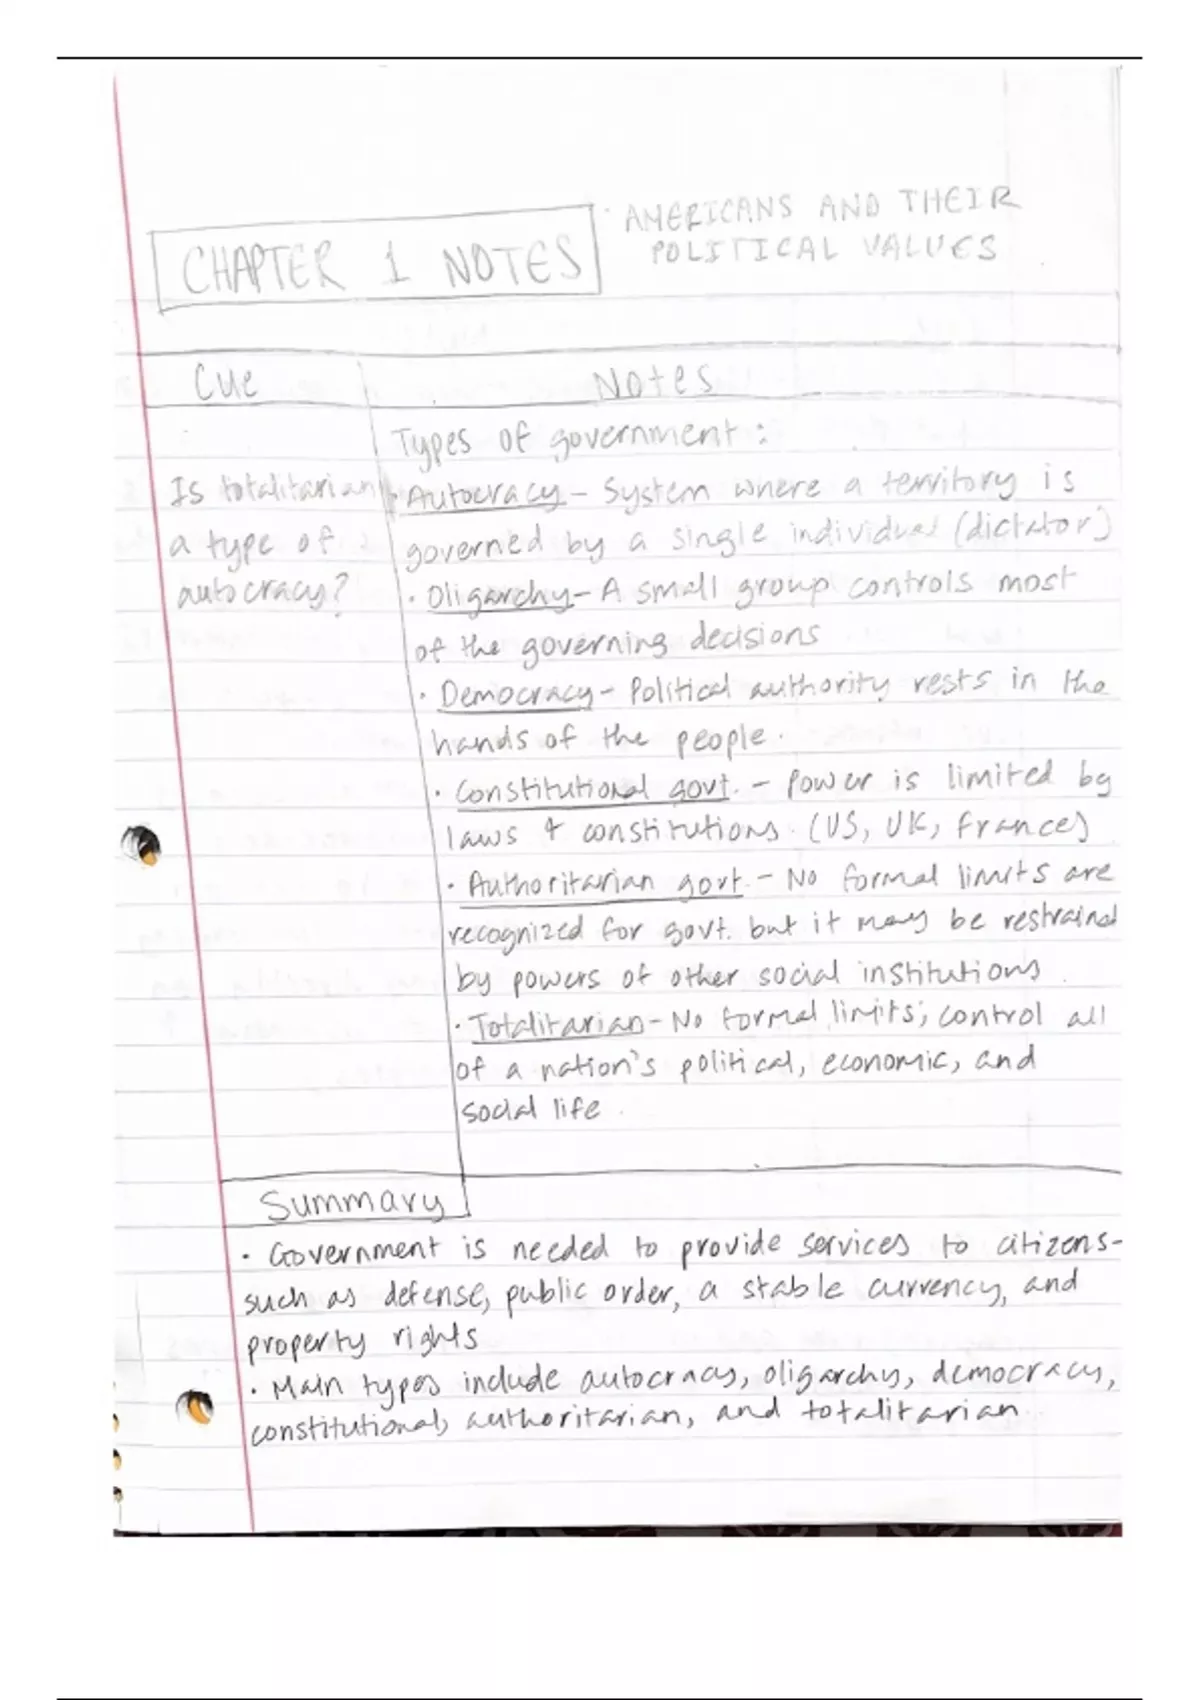 CHAPTER 1 NOTES
· AMERICANS AND THEIR
POLITICAL VALUES
Cue
Notes
Types of government:
Is totalitarian
a type of
autocracy?
· Autocracy - System where a territory is
governed by a single individual (dictator)
· Oligarchy - A small group controls most
of the governing decisions
· Democracy - Political authority rests in the
hands of the people.
· Constitutional govt. - Power is limited by
laws & constitutions. (US, UK, France)
· Authoritarian govt. - No formal limits are
recognized for govt. but it may be restrained
by powers of other social institutions.
· Totalitarian - No formal limits; control all
of a nation's political, economic, and
social life.
Summary
· Government is needed to provide services to citizens -
such as defense, public order, a stable currency, and
property rights
· Main types include autocracy, oligarchy, democracy,
constitutional, authoritarian, and totalitarian.